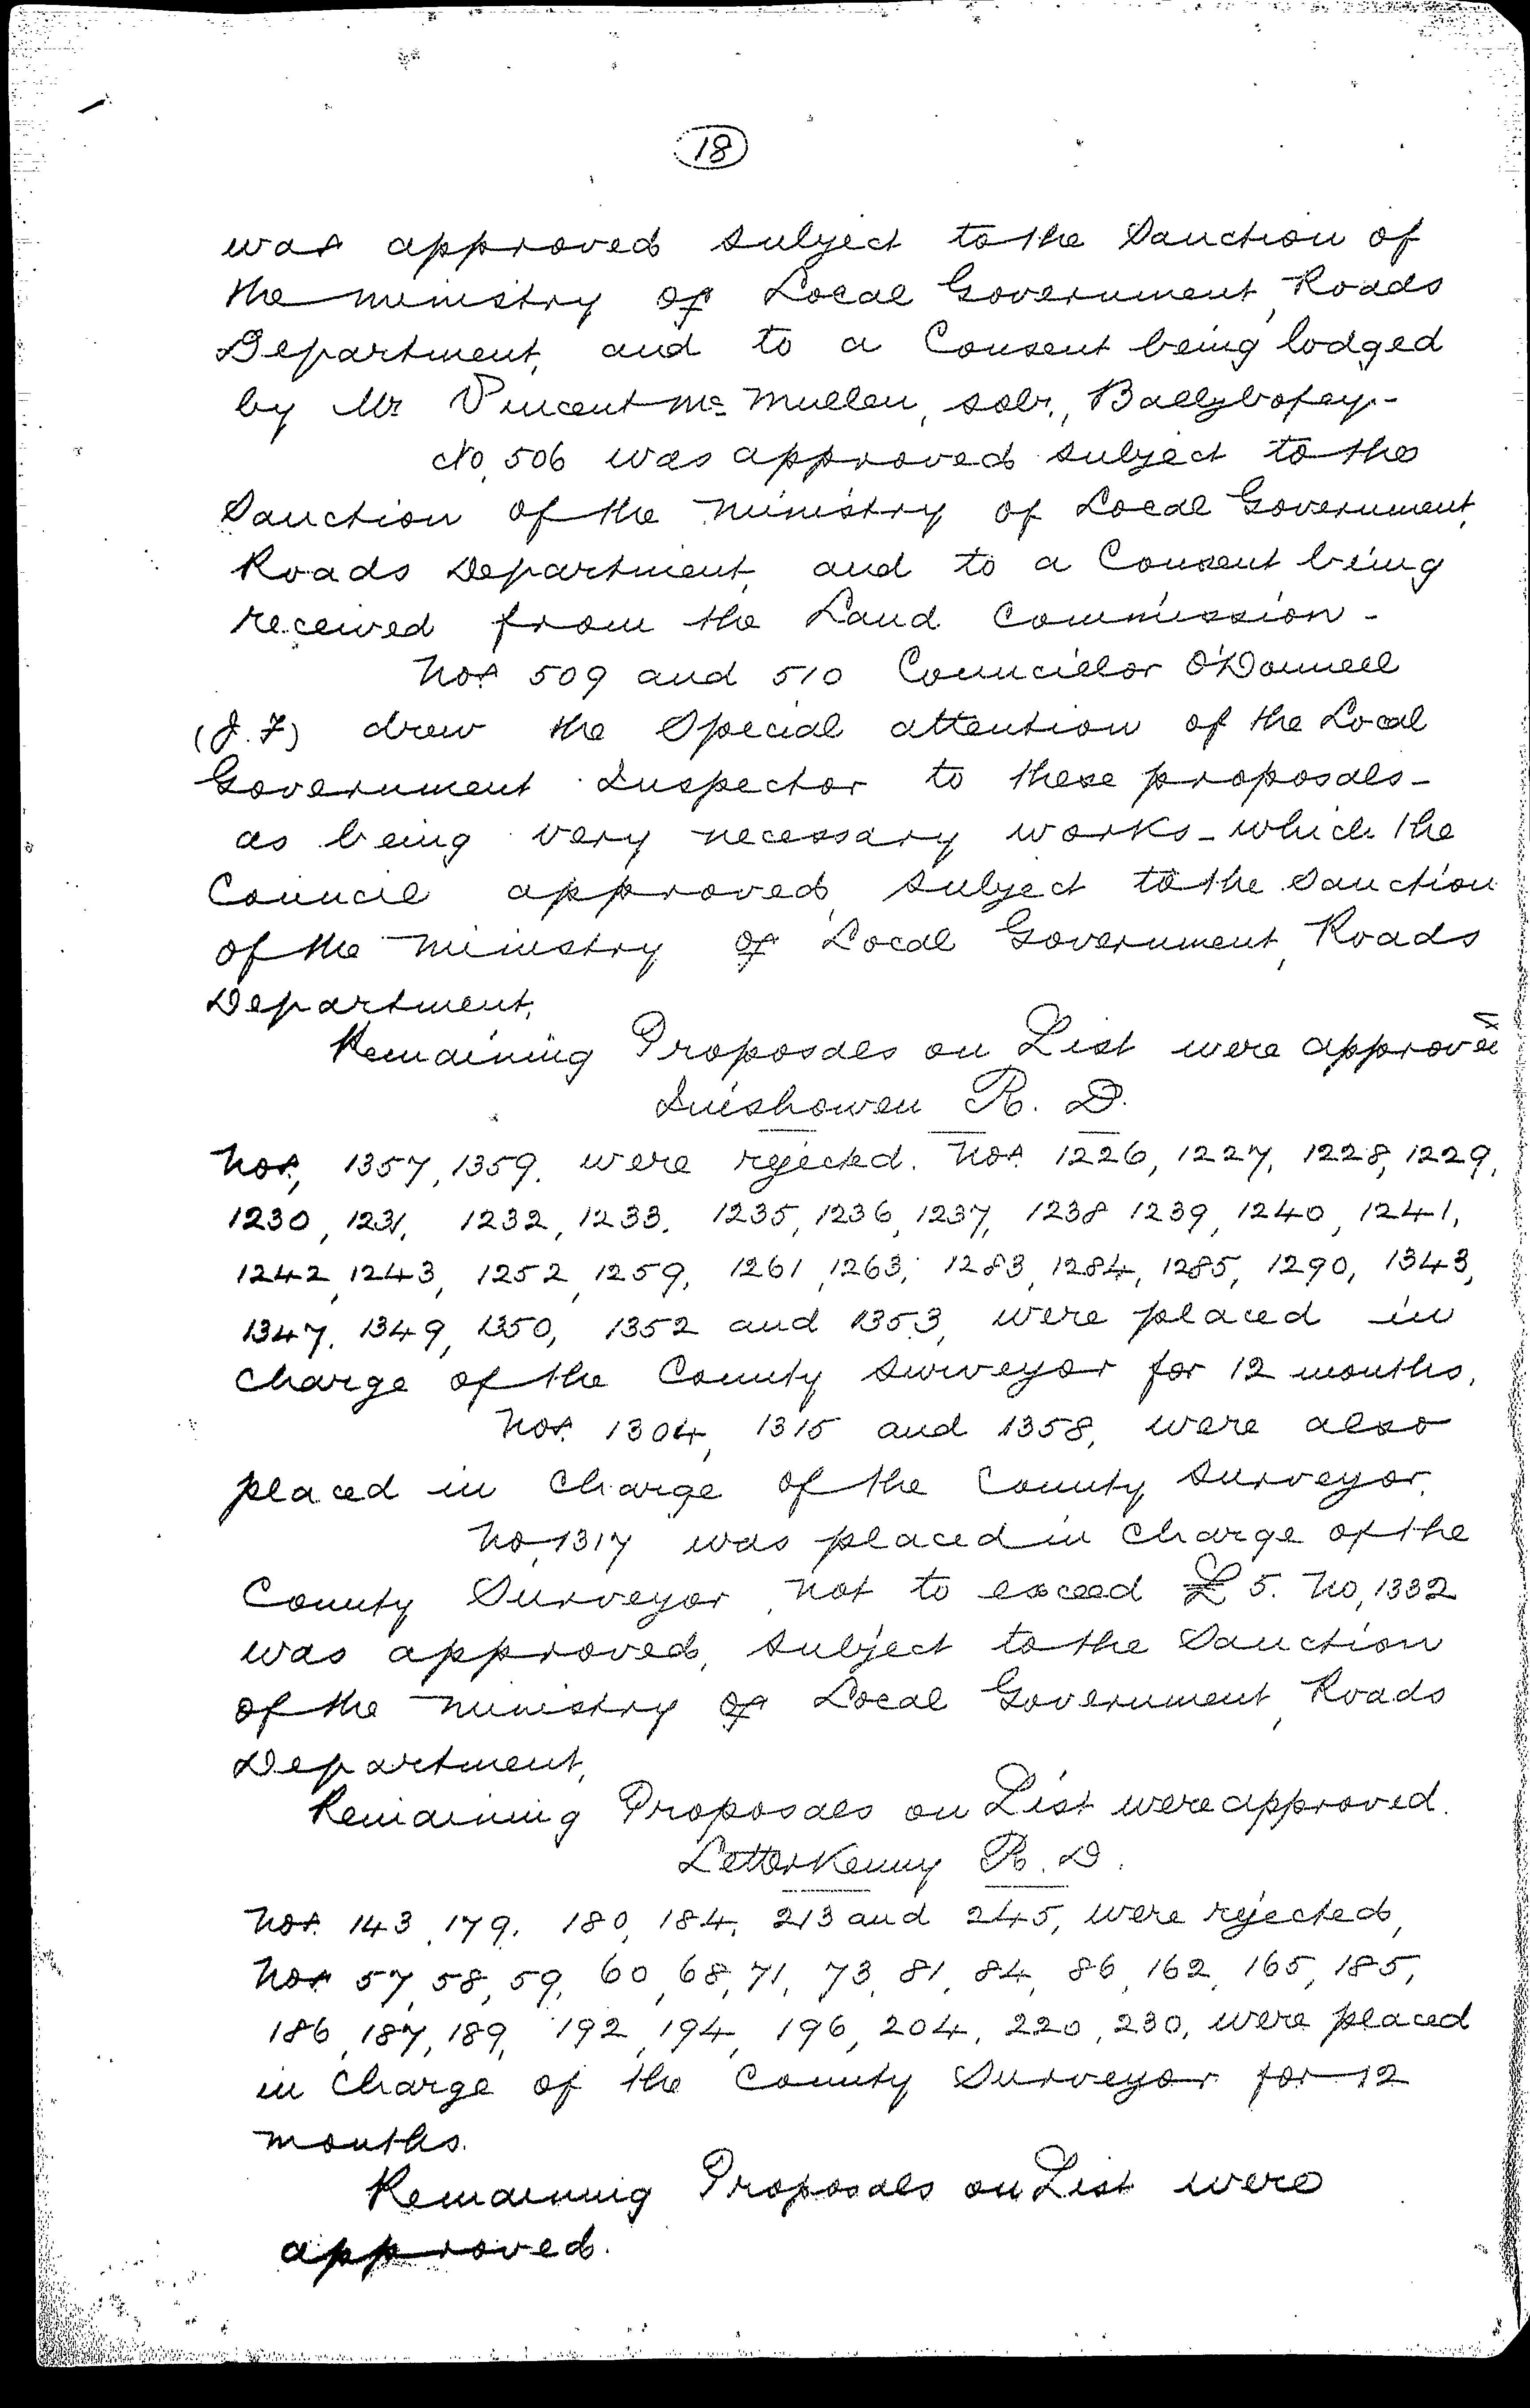 18
was approved subject to the Sanction of
the ministry of Local Government, Roads
Department, and to a Consent being lodged
by Mr Vincent Mc Mullen, solr., Ballybofey-
No, 506 was approved subject to the
Sanction of the Ministry of Local Government,
Roads Department, and to a Consent being
received from the Land Commission -
Nos 509 and 510 Councillor O'Donnell
(J. F) drew the Special attention of the Local
Government Inspector to these proposals -
as being very necessary works - which the
Council approved, subject to the Sanction
of the ministry of Local Government, Roads
Department,
Remaining Proposals on List were approved
Inishowen R. D.
Nos, 1357, 1359. were rejected. Nos. 1226, 1227, 1228, 1229,
1230, 1231, 1232, 1233, 1235, 1236, 1237, 1238 1239, 1240, 1241,
1242, 1243, 1252, 1259, 1261, 1263, 1283, 1284, 1285, 1290, 1343,
1347, 1349, 1350, 1352 and 1353, were placed in
charge of the County Surveyor for 12 months,
Nos. 1304, 1315 and 1358, were also
placed in Charge of the County Surveyor,
No, 1317 was placed in charge of the
County Surveyor, not to exceed £5. No, 1332
was approved, subject to the Sanction
of the ministry of Local Government, Roads
Department,
Remaining Proposals on List were approved.
Letterkenny R. D.
Nos. 143, 179, 180, 184, 213 and 245, were rejected,
Nos 57, 58, 59, 60, 68, 71, 73, 81, 84, 86, 162, 165, 185,
186, 187, 189, 192, 194, 196, 204, 220, 230, were placed
in Charge of the County Surveyor for 12
months.
Remaining Proposals on List were
approved.